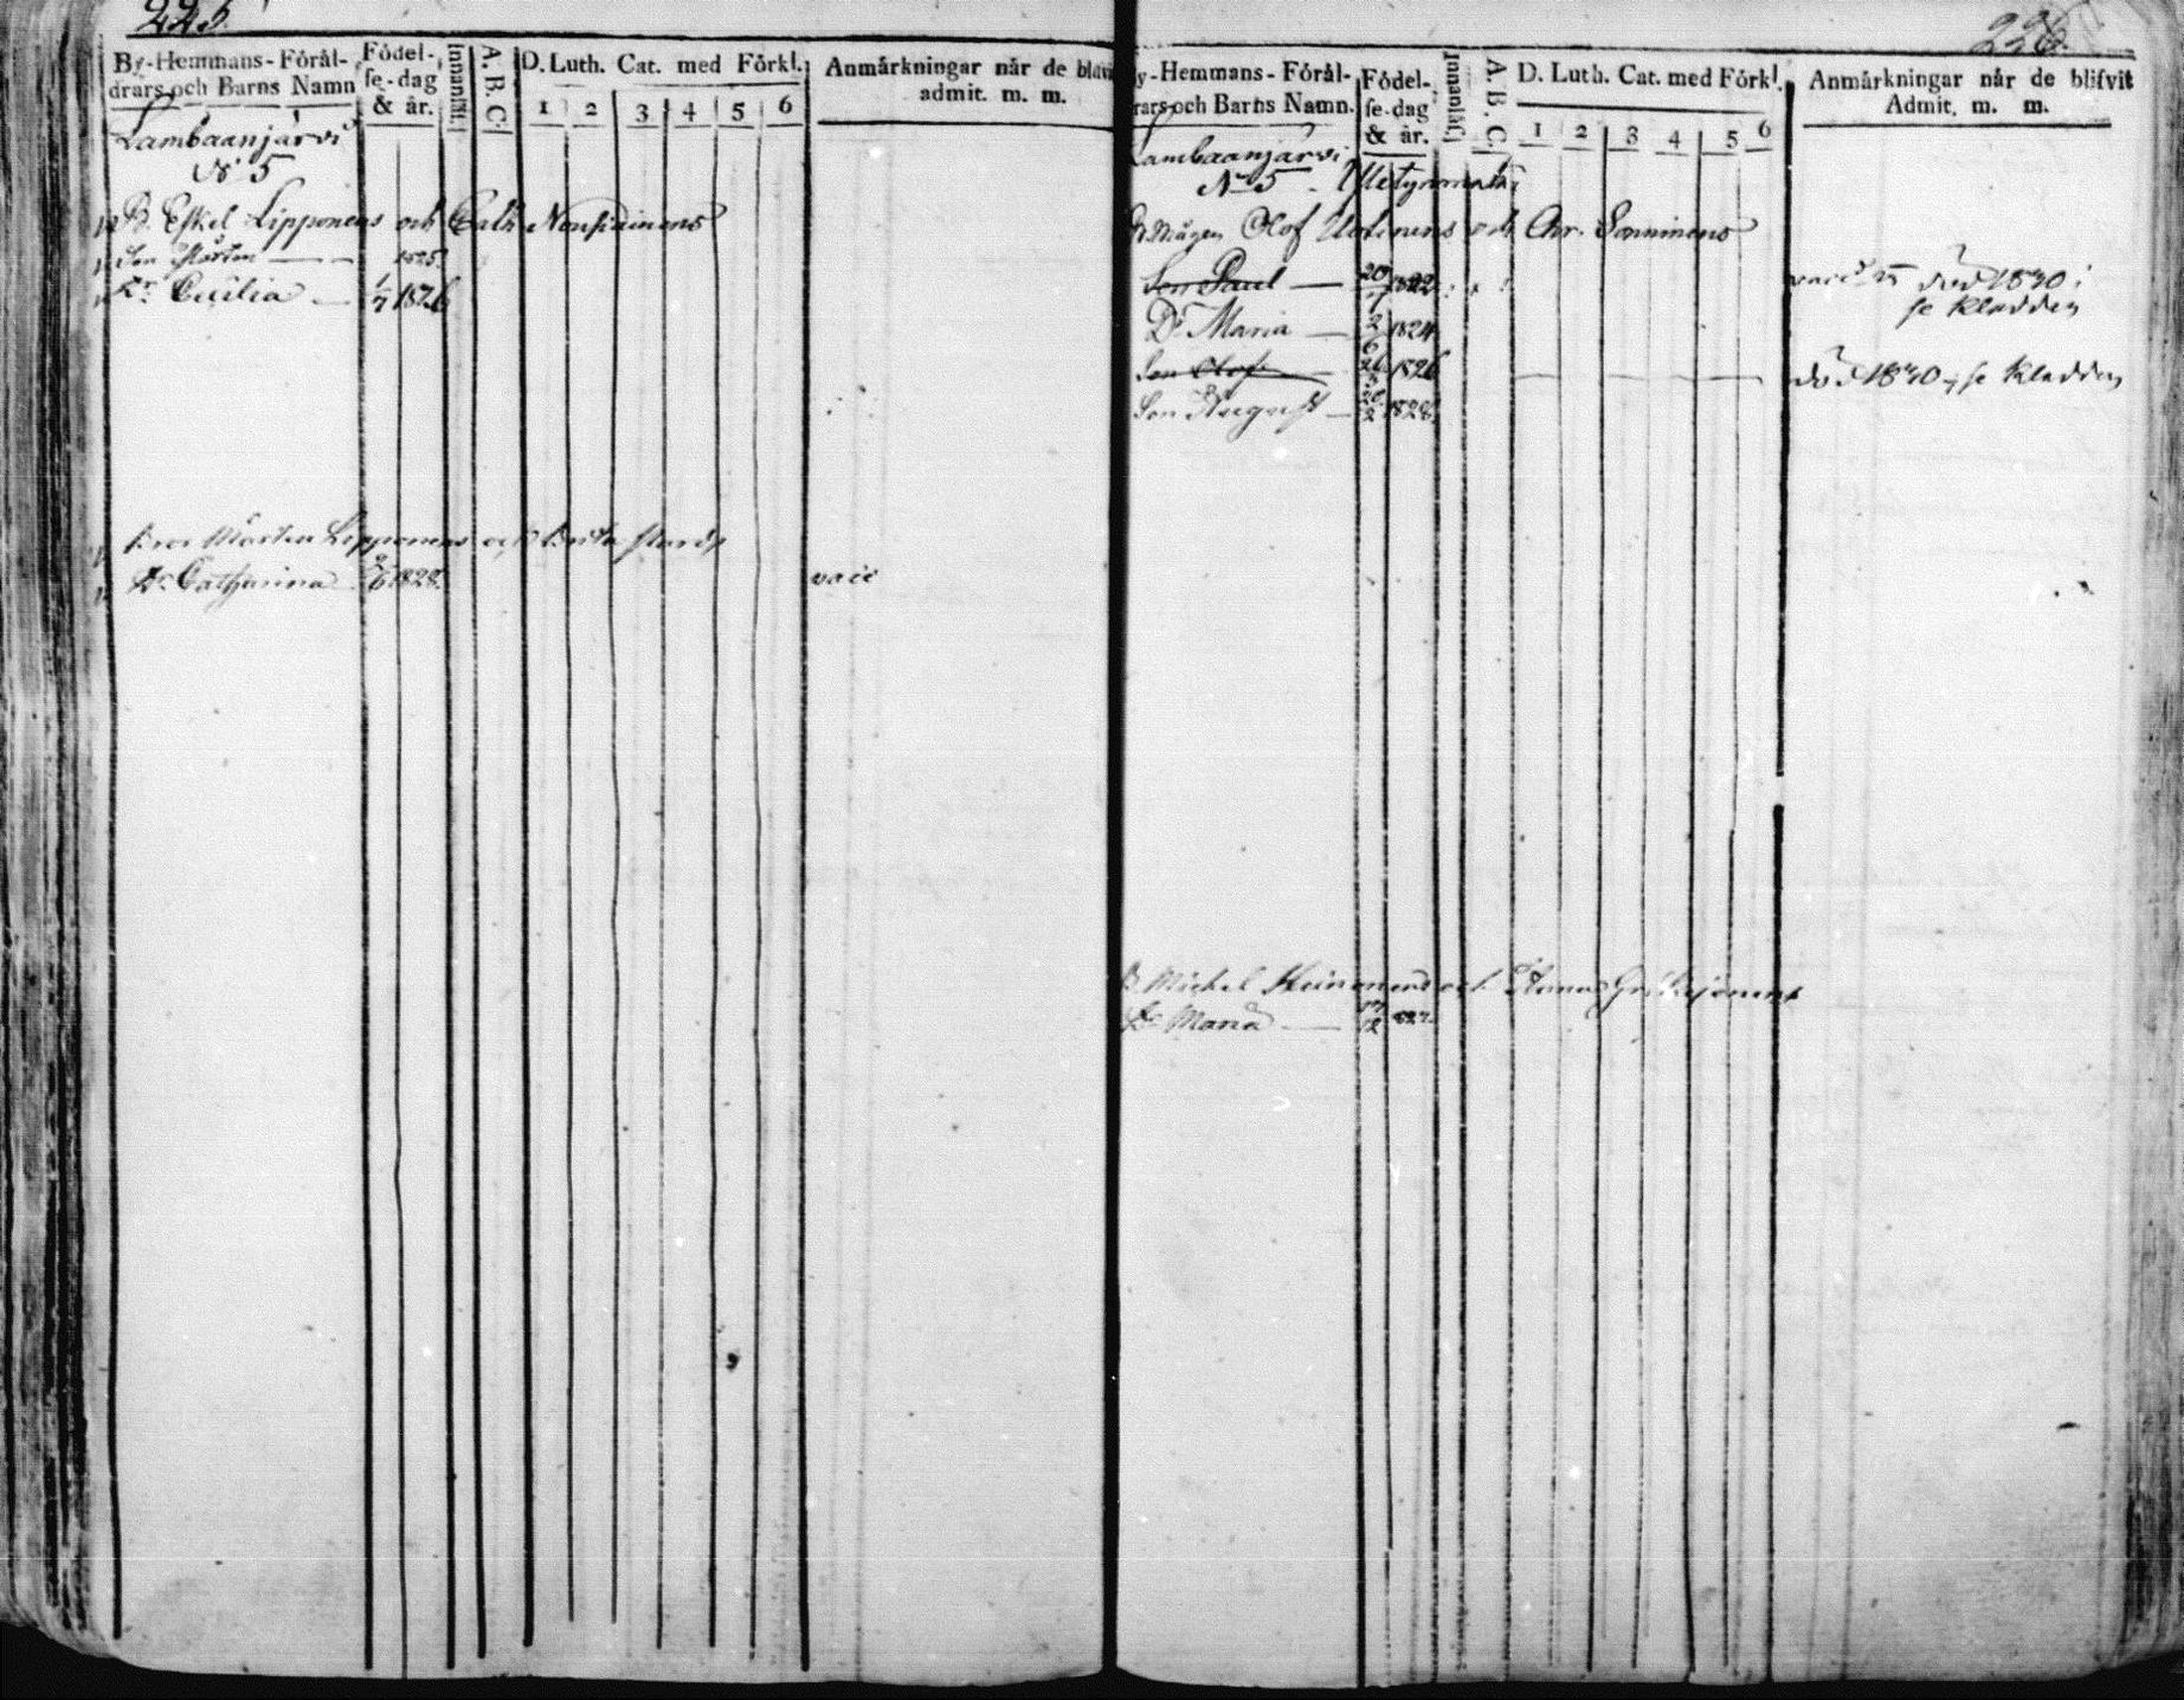 225.
By-Hemmans-Förål-
drars och Barns Namn
Födel-
se-dag
& år.
Innanläs.
A. B. C.
D. Luth. Cat. med Förkl.
1 2 3 4 5 6
Anmårkningar når de blifvi
admit. m. m.
Lambaanjärvi
N° 5
B. Eskel Lipponens och Cath. Nousiainens
Son Mårten 1825.
Dr. Cecilia 1/7 1826
Bror Mårten Lipponens och Brita
Dr. Catharina 2/6 1828.
vacc
226.
y-Hemmans-Förål-
rars och Barns Namn.
Födel-
se-dag
& år.
Innanläs.
A. B. C.
D. Luth. Cat. med Förkl.
1 2 3 4 5 6
Anmårkningar når de blifvit
Admit. m. m.
Lambaanjärvi
N° 5
Mågen Olof och Chr.
Son Paul 1822 död 1830
se kladden
Dr Maria 2/6 1824
Son Olof 26 1826 död 1830 se kladden
Son August 20/2 1828.
B. Michel och
Dr Maria 17/12 827.